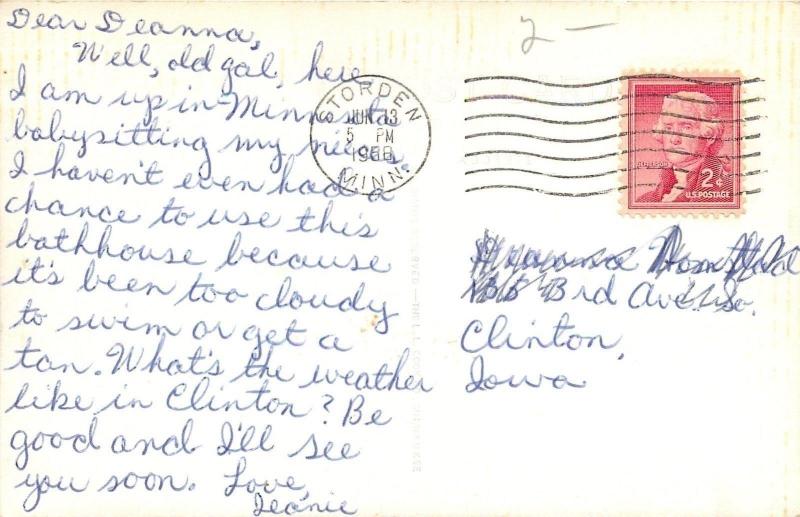 Dear Deanna,
Well, old gal, here
I am up in Minnesota
babysitting my niece.
I haven't even had a
chance to use this
bathhouse because
it's been too cloudy
to swim or get a
tan. What's the weather
like in Clinton? Be
good and I'll see
you soon. Love,
Jeanie
2 —
STORDEN
JUN 13
5 PM
1958
MINN.
JEFFERSON
2¢
U.S. POSTAGE
3rd Ave. So.
Clinton,
Iowa